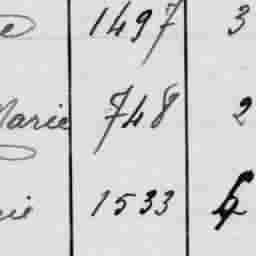 1497 3
Marie 748 2
1533 4